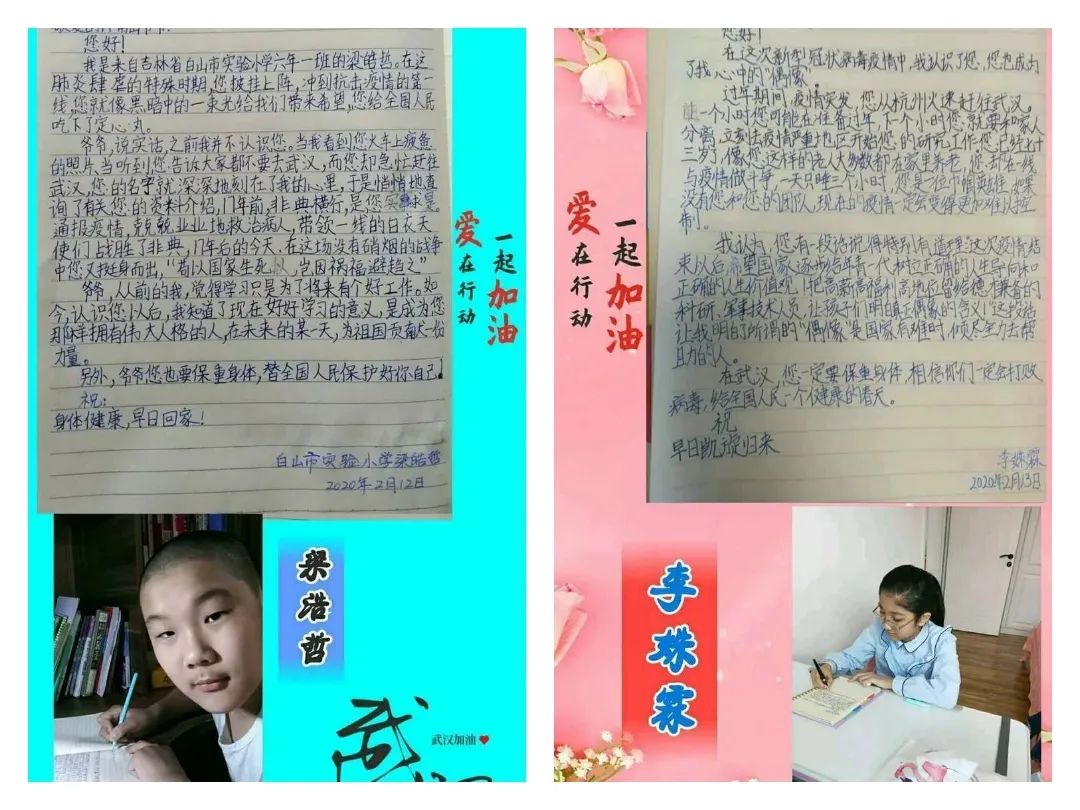 您好!
我是来自吉林省白山市实验小学六年一班的梁皓哲。在这
肺炎肆虐的特殊时期,您披挂上阵,冲到抗击疫情的第一
线,您就像黑暗中的一束光给我们带来希望,您给全国人民
吃下了定心丸。
爷爷,说实话,之前我并不认识您。当我看到您火车上疲惫
的照片,当听到您告诉大家都不要去武汉,而您却急忙赶往
武汉,您的名字就深深地刻在了我的心里,于是悄悄地查
询了有关您的资料介绍,17年前,非典横行,是您实事求是
通报疫情,兢兢业业地救治病人,带领一线的白衣天
使们战胜了非典,17年后的今天,在这场没有硝烟的战争
中您又挺身而出,“苟以国家生死以,岂因祸福避趋之”
爷爷,从前的我,觉得学习只是为了将来有个好工作。如
今,认识您以后,我知道了现在好好学习的意义,是成为您
那样拥有伟大人格的人,在未来的某一天,为祖国贡献一份
力量。
另外,爷爷您也要保重身体,替全国人民保护好你自己。
祝:
身体健康,早日回家!
白山市实验小学梁皓哲
2020年2月12日
爱在行动
一起加油
梁浩哲
武汉加油
您好!
在这次新型冠状病毒疫情中,我认识了您,您也成为
了我心中的“偶像”。
过年期间,疫情突发,您从杭州火速赶往武汉。
上一个小时您可能在准备过年,下一个小时您就要和家人
分离,立刻去疫情严重地区开始您的研究工作。您已经七十
三岁了,像您这样的老人大多数都在家里养老,您却在一线
与疫情做斗争,一天只睡三个小时,您是一位巾帼英雄,如果
没有您和您的团队,现在的疫情一定会变得更加难以控
制。
我认为,您有一段话说得特别有道理:这次疫情结
束以后希望国家逐步给年青一代树立正确的人生导向和
正确的人生价值观!把高薪高福利高地位留给德才兼备的
科研、军事技术人员,让孩子们明白真正偶像的含义!这句话
让我明白所谓的“偶像”是国家有难时,倾尽全力去帮
助的人。
在武汉,您一定要保重身体,相信你们一定会打败
病毒,给全国人民一个健康的春天。
祝
早日凯旋归来
李姝霖
2020年2月13日
爱在行动
一起加油
李姝霖